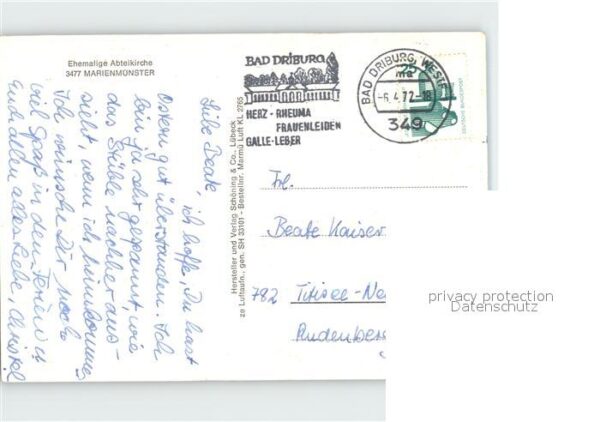 Ehemalige Abteikirche
3477 MARIENMÜNSTER
Liebe Beate,
ich hoffe, Du hast
Ostern gut überstanden. Ich
bin ja sehr gespannt wie
das Stüble nachher aus-
sieht, wenn ich heimkomme.
Ich wünsche Dir noch
viel Spaß in den Ferien u.
Euch allen alles Liebe, Christel
Hersteller und Verlag Schöning & Co., Lübeck
ze Luftaufn., gen. SH 33101 - Bestellnr. Marmü Luft KL 2765
BAD DRIBURG
HERZ - RHEUMA
FRAUENLEIDEN
GALLE - LEBER
BAD DRIBURG, WESTF
ma
-6.4.77-18
349
25
DEUTSCHE BUNDESPOST
Frl.
Beate Kaiser
782 Titisee-Ne
privacy protection
Datenschutz